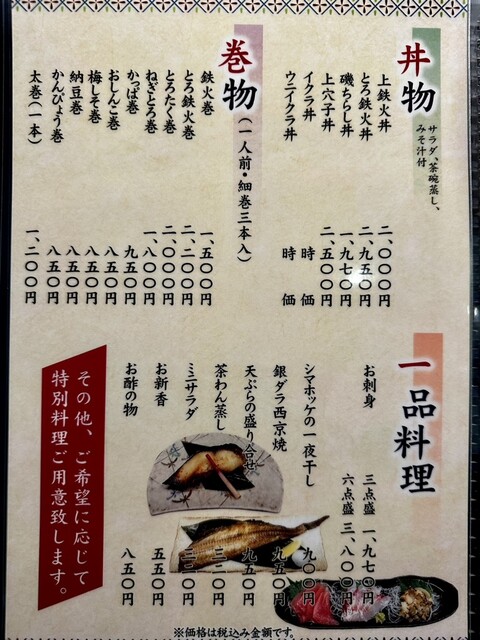 丼物
サラダ、茶碗蒸し、
みそ汁付
上鉄火丼 二、〇〇〇円
とろ鉄火丼 二、九五〇円
磯ちらし丼 一、九七〇円
上穴子丼 二、五〇〇円
イクラ丼 時価
ウニイクラ丼 時価
巻物(一人前・細巻三本入)
鉄火巻 一、五〇〇円
とろ鉄火巻 二、二〇〇円
とろたく巻 二、〇〇〇円
ねぎとろ巻 一、八〇〇円
かっぱ巻 九五〇円
おしんこ巻 八五〇円
梅しそ巻 八五〇円
納豆巻 八五〇円
かんぴょう巻 八五〇円
太巻(一本) 一、二〇〇円
一品料理
お刺身 三点盛 一、九七〇円
六点盛 三、八〇〇円
シマホッケの一夜干し 九〇〇円
銀ダラ西京焼 九五〇円
天ぷらの盛り合せ 九五〇円
茶わん蒸し 三二〇円
ミニサラダ 三二〇円
お新香 五五〇円
お酢の物 八五〇円
その他、ご希望に応じて
特別料理ご用意致します。
※価格は税込み金額です。